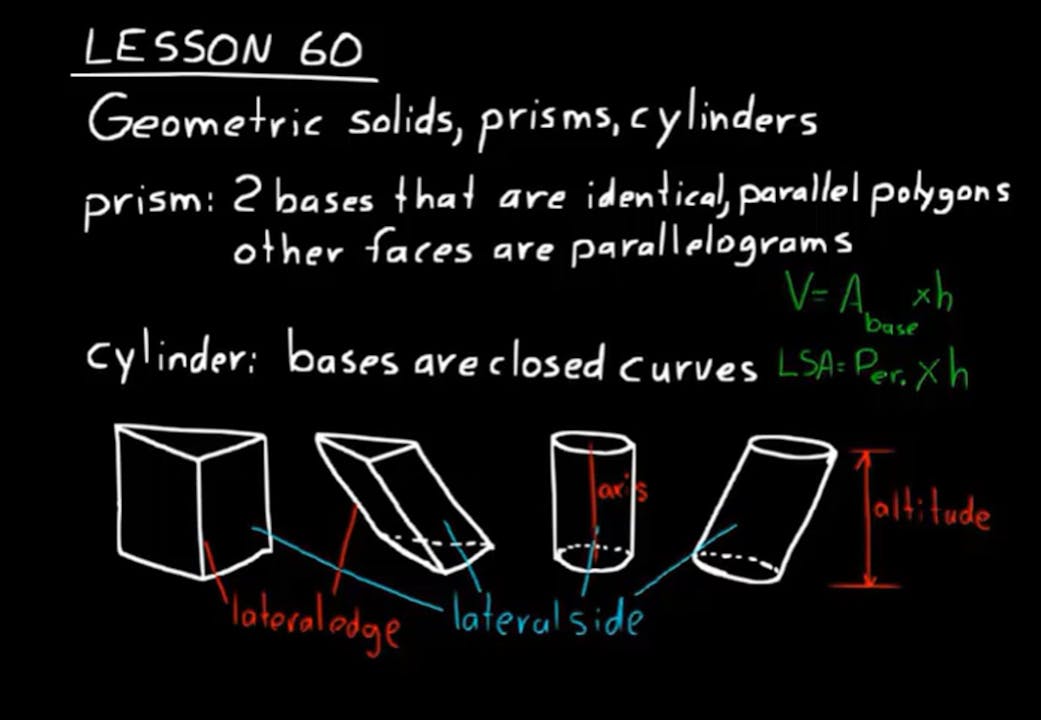 LESSON 60
Geometric solids, prisms, cylinders
prism: 2 bases that are identical, parallel polygons
other faces are parallelograms
V= A base × h
cylinder: bases are closed curves LSA= Per. × h
axis
altitude
lateral edge
lateral side